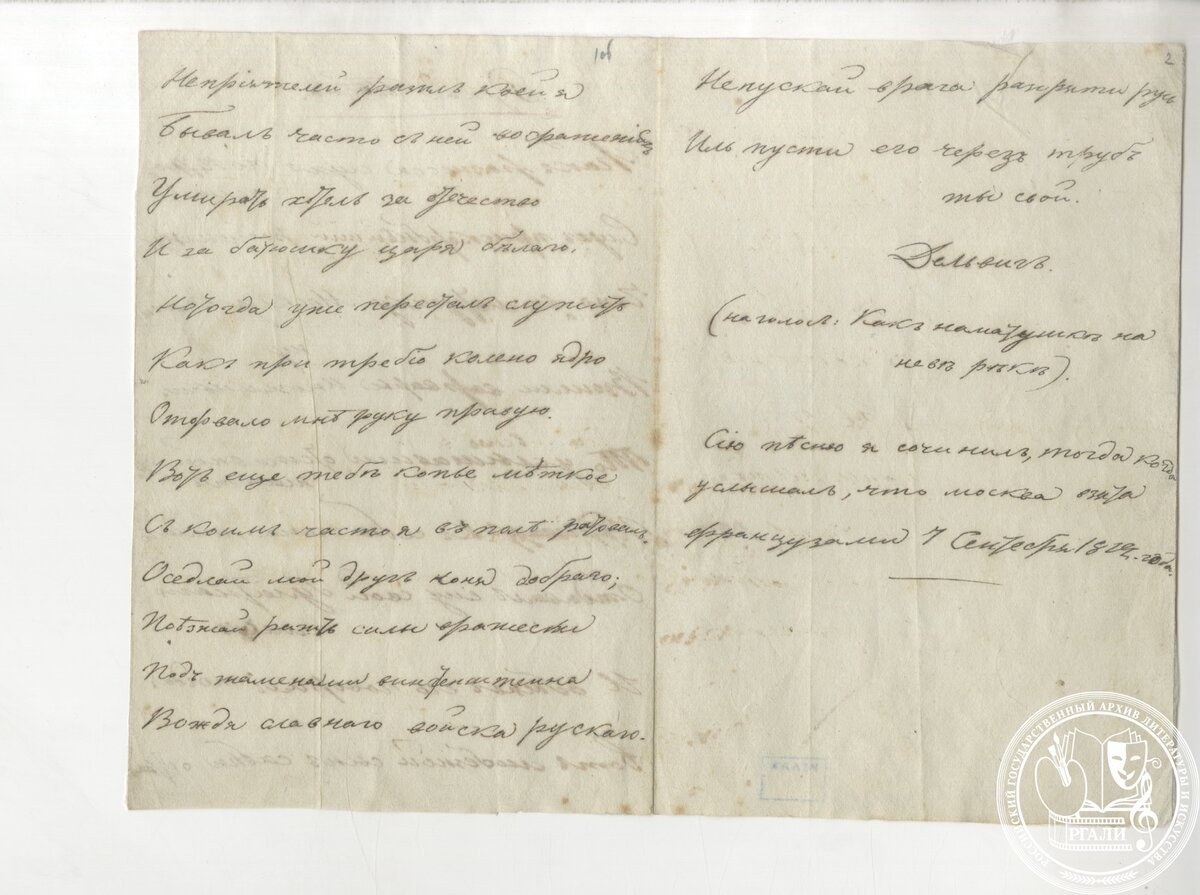 1об
Непрiятелей разилъ коей я
Бывалъ часто съ ней во сраженiяхъ
Умирать хотелъ за отечество
И за батюшку царя бѣлаго.
Но тогда уже пересталъ служить
Какъ при требiо колено ядро
Оторвало мнѣ руку правую.
Вотъ еще тебѣ копье мѣткое
Съ коимъ часто я въ полѣ ратовалъ.
Оседлай мой другъ коня добраго;
Поѣзжай разить силы вражески
Подъ знаменами винтгенштеина
Вождя славнаго войска рускаго.
2
Непускай врага разрити русь
Иль пусти его черезъ трупъ
ты свой.
Дельвигъ.
(на голосъ: Какъ на матушкѣ на
невѣ рѣкѣ).
Сiю пѣсню я сочинилъ, тогда когда
услышалъ, что москва взята
французами 7 Сентебря 1812. года.
РОССИЙСКИЙ ГОСУДАРСТВЕННЫЙ АРХИВ ЛИТЕРАТУРЫ И ИСКУССТВА
РГАЛИ